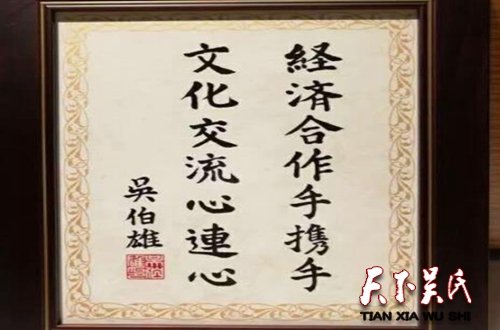 経済合作手携手
文化交流心連心
吳伯雄
天下吴氏
TIAN XIA WU SHI